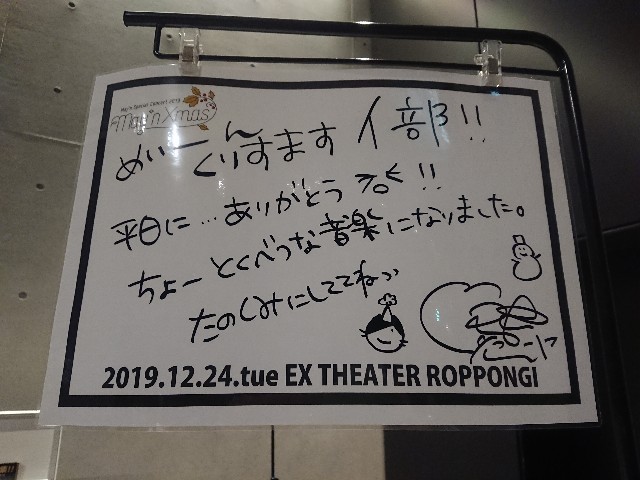 May'n Special Concert 2019
May'n Xmas
めいーん
くりすます イ部!!
平日に…ありがとう !!
ちょーとくべつな音楽になりました。
たのしみにしててねっ
2019.12.24.tue EX THEATER ROPPONGI